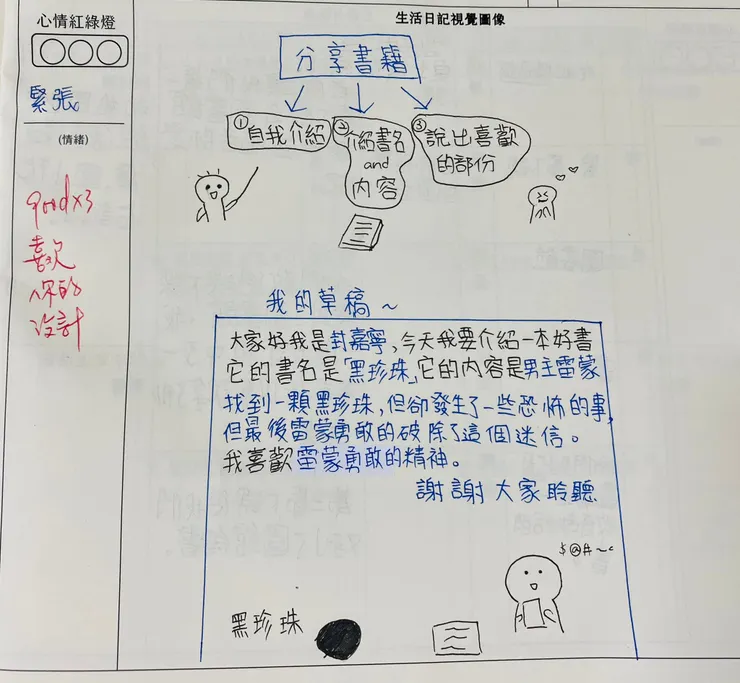 心情紅綠燈
緊張。
(情緒)
good×3
喜歡
你的
設計
生活日記視覺圖像
分享書籍
① 自我介紹
② 介紹書名
and
內容
③ 說出喜歡
的部份
我的草稿~
大家好我是封嘉寧,今天我要介紹一本好書
它的書名是「黑珍珠」,它的內容是男主雷蒙
找到一顆黑珍珠,但卻發生了一些恐怖的事,
但最後雷蒙勇敢的破除了這個迷信。
我喜歡雷蒙勇敢的精神。
謝謝大家聆聽
$@#~
黑珍珠